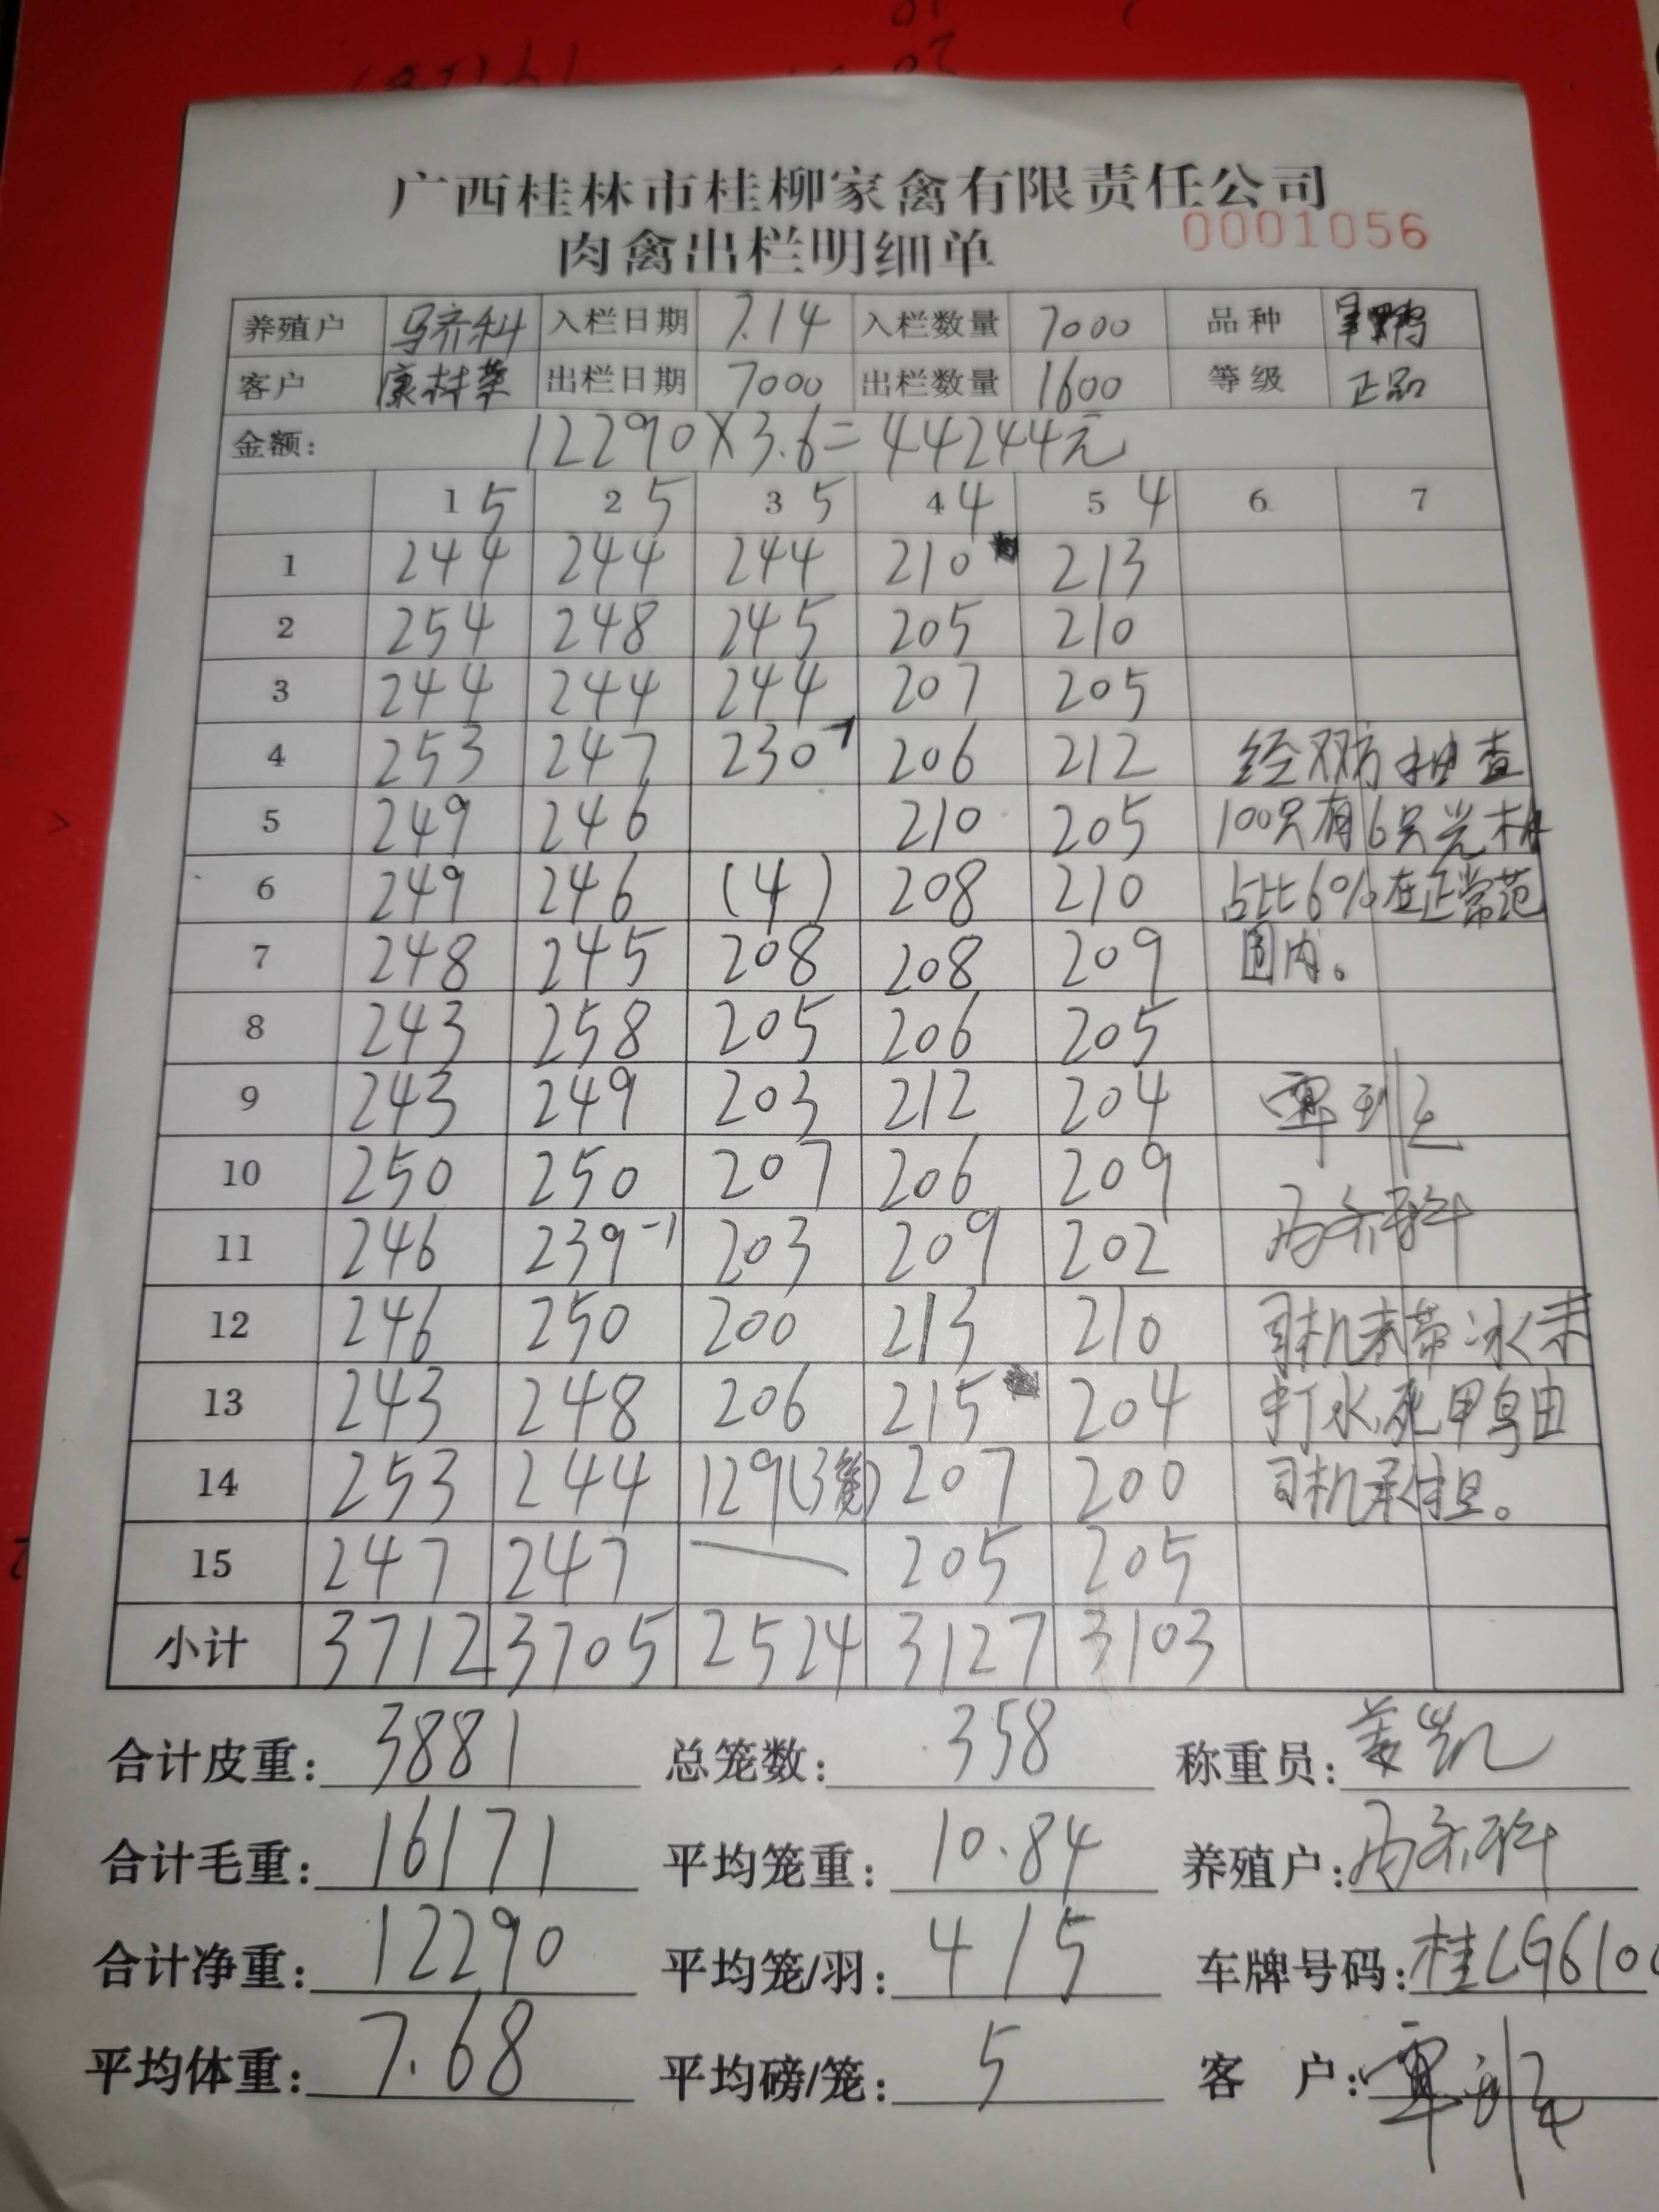 广西桂林市桂柳家禽有限责任公司
0001056
肉禽出栏明细单
养殖户 马齐科 入栏日期 7.14 入栏数量 7000 品种
客户 康村苹 出栏日期 7000 出栏数量 1600 等级 正品
金额: 12290×3.6=44244元
1 5 2 5 3 5 4 4 5 4 6 7
1 244 244 244 210 213
2 254 248 245 205 210
3 244 244 244 207 205
4 253 247 230 -1 206 212 经双方抽查
5 249 246 210 205 100只有6只光
6 249 246 (4) 208 210 占比6%在正常范
7 248 245 208 208 209 围内。
8 243 258 205 206 205
9 243 249 203 212 204
10 250 250 207 206 209
11 246 239 -1 203 209 202
12 246 250 200 213 210 司机未带冰未
13 243 248 206 215 204 打水,死甲鸟由
14 253 244 129(3笼) 207 200 司机承担。
15 247 247 — 205 205
小计 3712 3705 2524 3127 3103
合计皮重: 3881 总笼数: 358 称重员: 姜凯
合计毛重: 16171 平均笼重: 10.84 养殖户:
合计净重: 12290 平均笼/羽: 4/5 车牌号码: 桂LG610
平均体重: 7.68 平均磅/笼: 5 客 户: